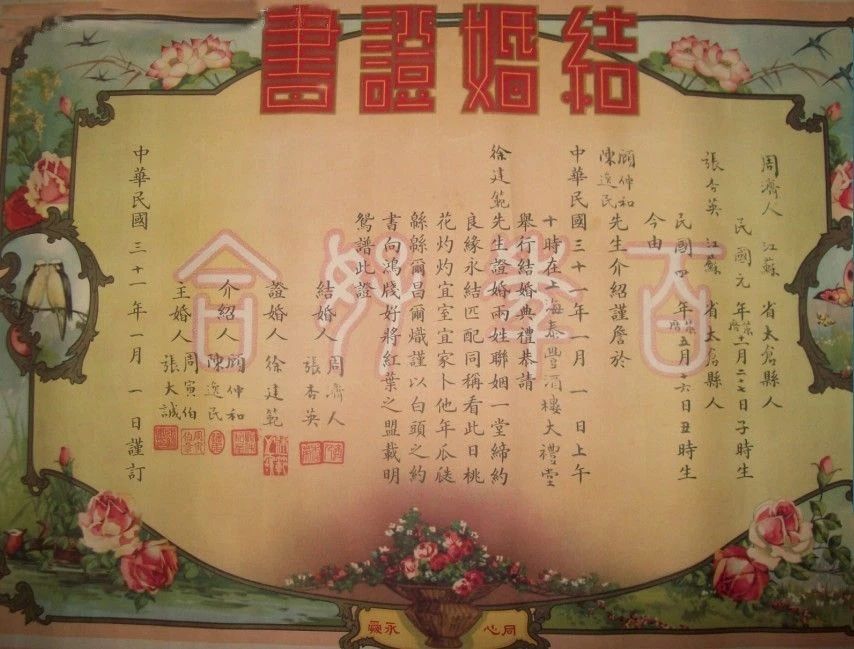 結婚證書
百年好合
周濟人 江蘇 省太倉縣人
民國元年舊曆十一月二十七日子時生
張杏英 江蘇 省太倉縣人
民國四年舊曆五月十六日丑時生
今由
顧仲和
陳逸民
先生介紹謹詹於
中華民國三十一年一月一日上午
十時在上海泰豐酒樓大禮堂
舉行結婚典禮恭請
徐建範先生證婚兩姓聯姻一堂締約
良緣永結匹配同稱看此日桃
花灼灼宜室宜家卜他年瓜瓞
緜緜爾昌爾熾謹以白頭之約
書向鴻牋好將紅葉之盟載明
鴛譜此證
結婚人
周濟人
張杏英
證婚人 徐建範
介紹人
顧仲和
陳逸民
主婚人
周寅伯
張大誠
中華民國三十一年一月一日謹訂
同心 永